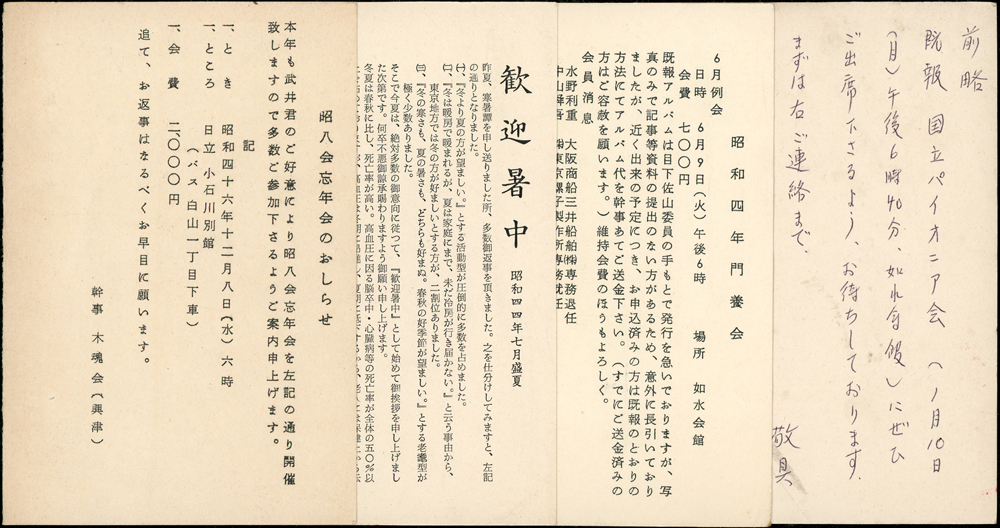 前略
既報 国立パイオニア会 (1月10日
(月)午後6時40分 如水会館)にぜひ
ご出席下さるよう、お待ちしております.
まずは右ご連絡まで.
敬具
昭和四年門養会
6月例会
日時 6月9日(火)午後6時 場所 如水会館
会費 七〇〇円
既報アルバムは目下佐山委員の手もとで発行を急いでおりますが、写
真のみで記事等資料の提出のない方があるため、意外に長引いており
ましたが、近く出来の予定につき、お申込済みの方は既報のとおりの
方法にてアルバム代を幹事あてご送金下さい。(すでにご送金済みの
方はご容赦を願います。)維持会費のほうもよろしく。
会員消息
水野利重 大阪商船三井船舶㈱専務退任
中山舜吾 ㈱東京螺子製作所専務就任
歓迎暑中 昭和四四年七月盛夏
昨夏、寒暑譚を申し送りました所、多数御返事を頂きました。之を仕分けしてみますと、左記
の通りとなりました。
㈠、『冬より夏の方が望ましい。』とする活動型が圧倒的に多数を占めました。
㈡、『冬は暖房で暖まれるが、夏は家庭にまで、未だ冷房が行き届かない。』と云う事由から、
東京地方では冬の方が好ましいとする方が、二割位ありました。
㈢、『冬の寒さも、夏の暑さも、どちらも好まぬ。春秋の好季節が望ましい。』とする老衰型が
極く少数ありました。
そこで今夏は、絶対多数の御意向に従つて、『歓迎暑中』として始めて御挨拶を申し上げまし
た次第です。何卒不悪御諒承賜わりますよう御願い申し上げます。
冬夏は春秋に比し、死亡率が高い。高血圧に因る脳卒中・心臓病等の死亡率が全体の五〇%以
昭八会忘年会のおしらせ
本年も武井君のご好意により昭八会忘年会を左記の通り開催
致しますので多数ご参加下さるようご案内申上げます。
記
一、とき 昭和四十六年十二月八日(水)六時
一、ところ 日立小石川別館
(バス 白山一丁目下車)
一、会費 二、〇〇〇円
追て、お返事はなるべくお早目に願います。
幹事 木魂会(興津)